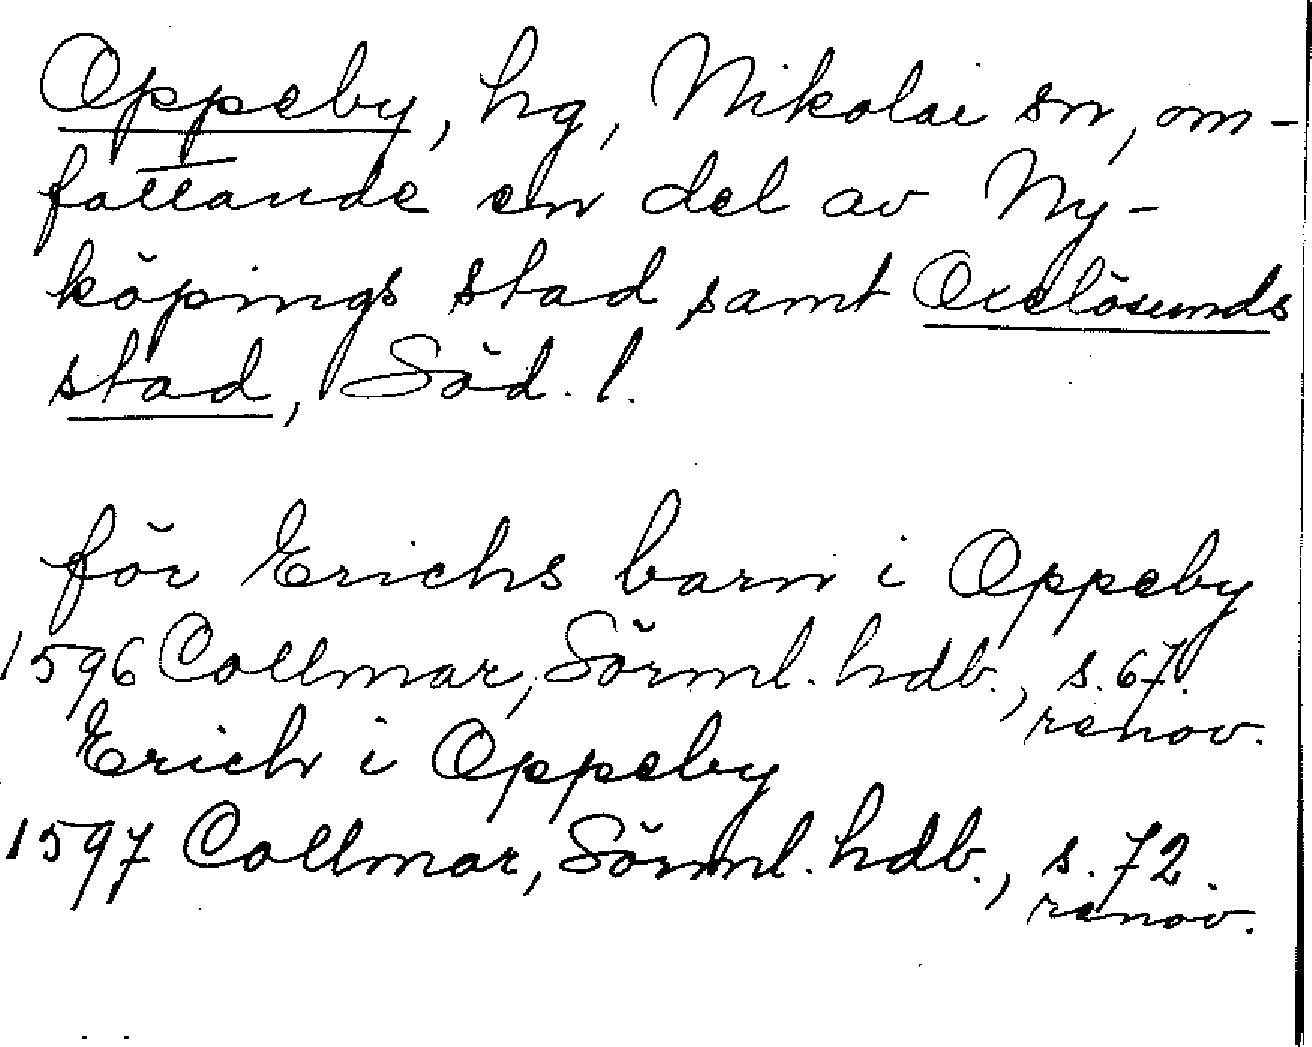 Oppeby, hg, Nikolai sn, om-
fattande en del av Ny-
köpings stad samt Oxelösunds
stad, Söd. l.
för Erichs barn i Oppeby
1596 Collmar, Sörml. hdb., s. 67.
renov.
Erich i Oppeby
1597 Collmar, Sörml. hdb., s. 72.
renov.